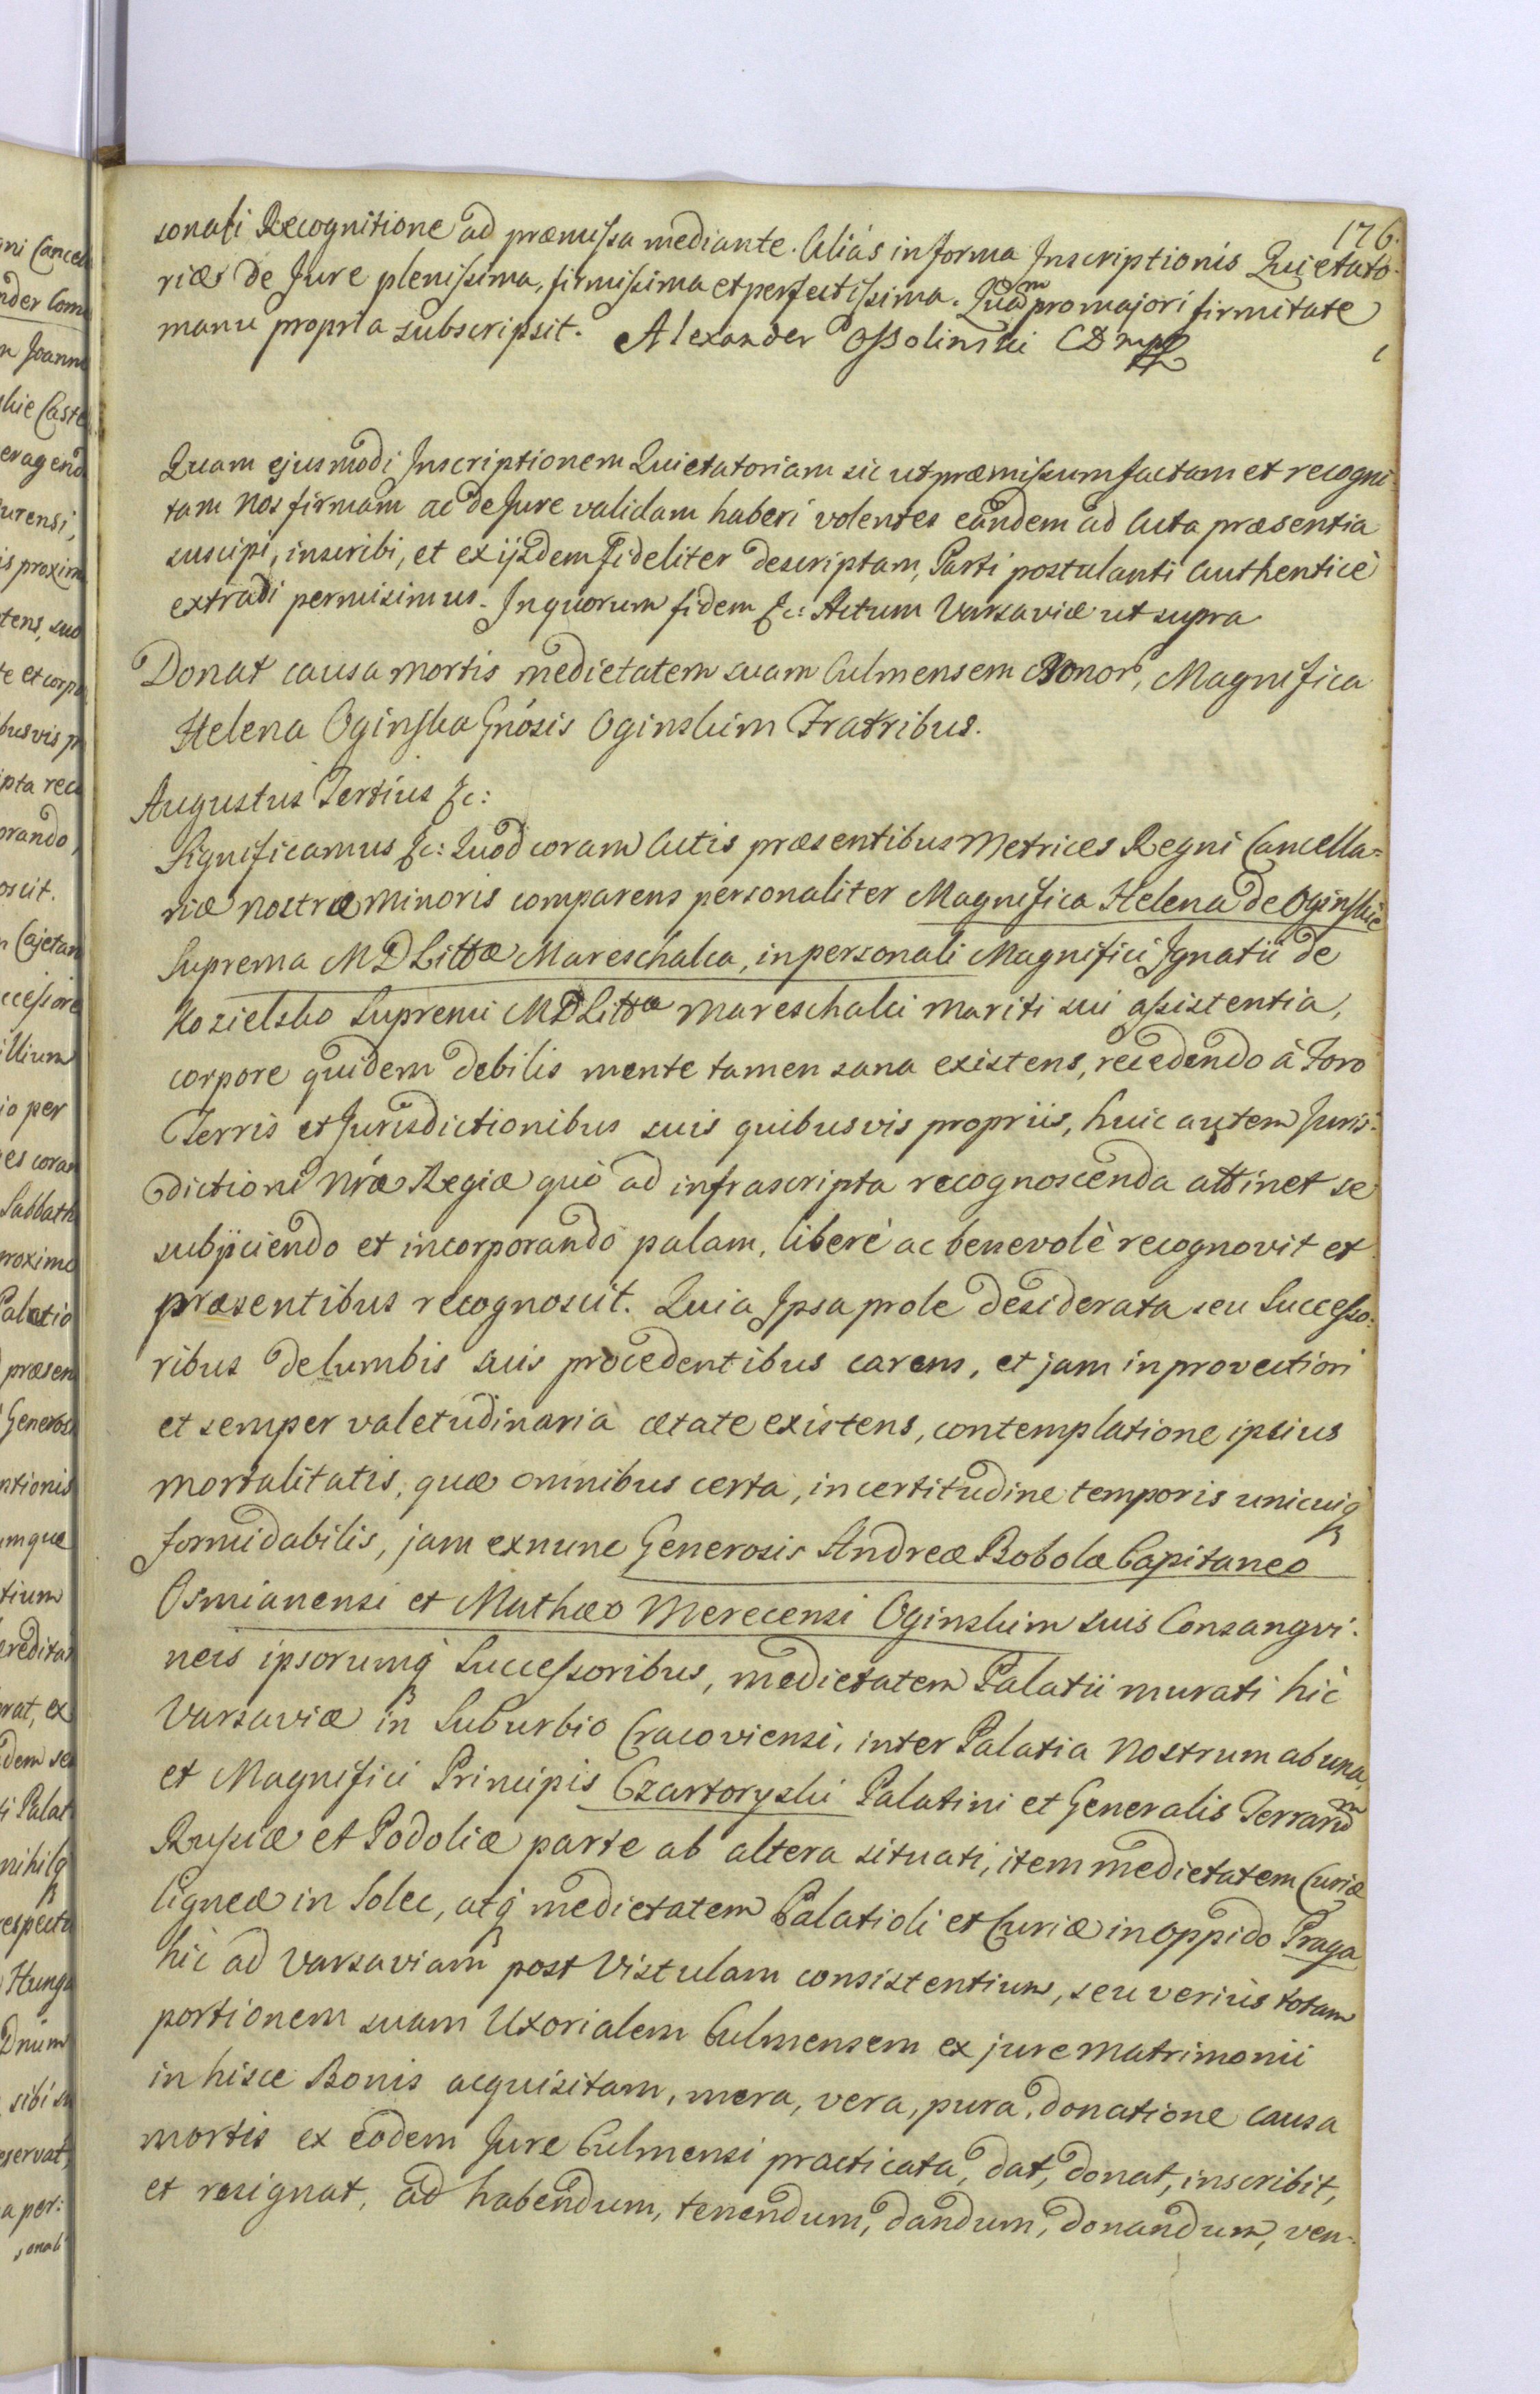 176.
sonali Recognitione ad præmissa mediante. Aliàs in forma Inscriptionis Quietato-
riæ de Jure plenissima, firmissima et perfectissima. Quam pro majori firmitate
manu propria subscripsit. Alexander Ossolinski CD mpp
Quam ejusmodi Inscriptionem Quietatoriam sic ut præmissum factam et recogni-
tam nos firmam ac de Jure validam haberi volentes eandem ad Acta præsentia
suscipi, inscribi, et ex ijsdem fideliter descriptam, Parti postulanti Authenticè
extradi permisimus. In quorum fidem &c: Actum Varsaviæ ut supra
Donat causa mortis medietatem suam Culmensem Bonor, Magnifica
Helena Oginska Gnosis Oginskim Fratribus.
Augustus Tertius &c:
Significamus &c: Quod coram Actis præsentibus Metrices Regni Cancella=
riæ nostræ Minoris comparens personaliter Magnifica Helena de Oginskie
Suprema MDLittæ Mareschalca, in personali Magnifici Ignatii de
Kozielsko Supremi MDLittæ Mareschalci Mariti sui assistentia,
corpore quidem debilis mente tamen sana existens, recedendo à Foro
Terris et Jurisdictionibus suis quibusvis propriis, huic autem Juris-
dictioni Nræ Regiæ quò ad infrascripta recognoscenda attinet se
subjiciendo et incorporando palam, liberè ac benevolè recognovit et
præsentibus recognoscit. Quia Ipsa prole desiderata seu Successo-
ribus de lumbis suis procedentibus carens, et jam in provectiori
et semper valetudinaria ætate existens, contemplatione ipsius
mortalitatis, quæ omnibus certa, incertitudine temporis unicuiq
formidabilis, jam exnunc Generosis Andreæ Bobolæ Capitaneo
Osmianensi et Mathæo Merecensi Oginskim suis Consangvi-
neis ipsorumq Successoribus, medietatem Palatii murati hic
Varsaviæ in Suburbio Cracoviensi, inter Palatia Nostrum ab una,
et Magnifici Principis Czartoryski Palatini et Generalis Terrarum
Russiæ et Podoliæ parte ab altera situati, item medietatem Curiæ
ligneæ in Solec, atq medietatem Palatioli et Curiæ in oppido Praga
hic ad Varsaviam post Vistulam consistentium, seu veriùs totam
portionem suam Uxorialem Culmensem ex jure Matrimonii
in hisce Bonis acquisitam, mera, vera, pura, donatione causa
mortis ex eodem Jure Culmensi practicata, dat, donat, inscribit,
et resignat, ad habendum, tenendum, dandum, donandum, ven-